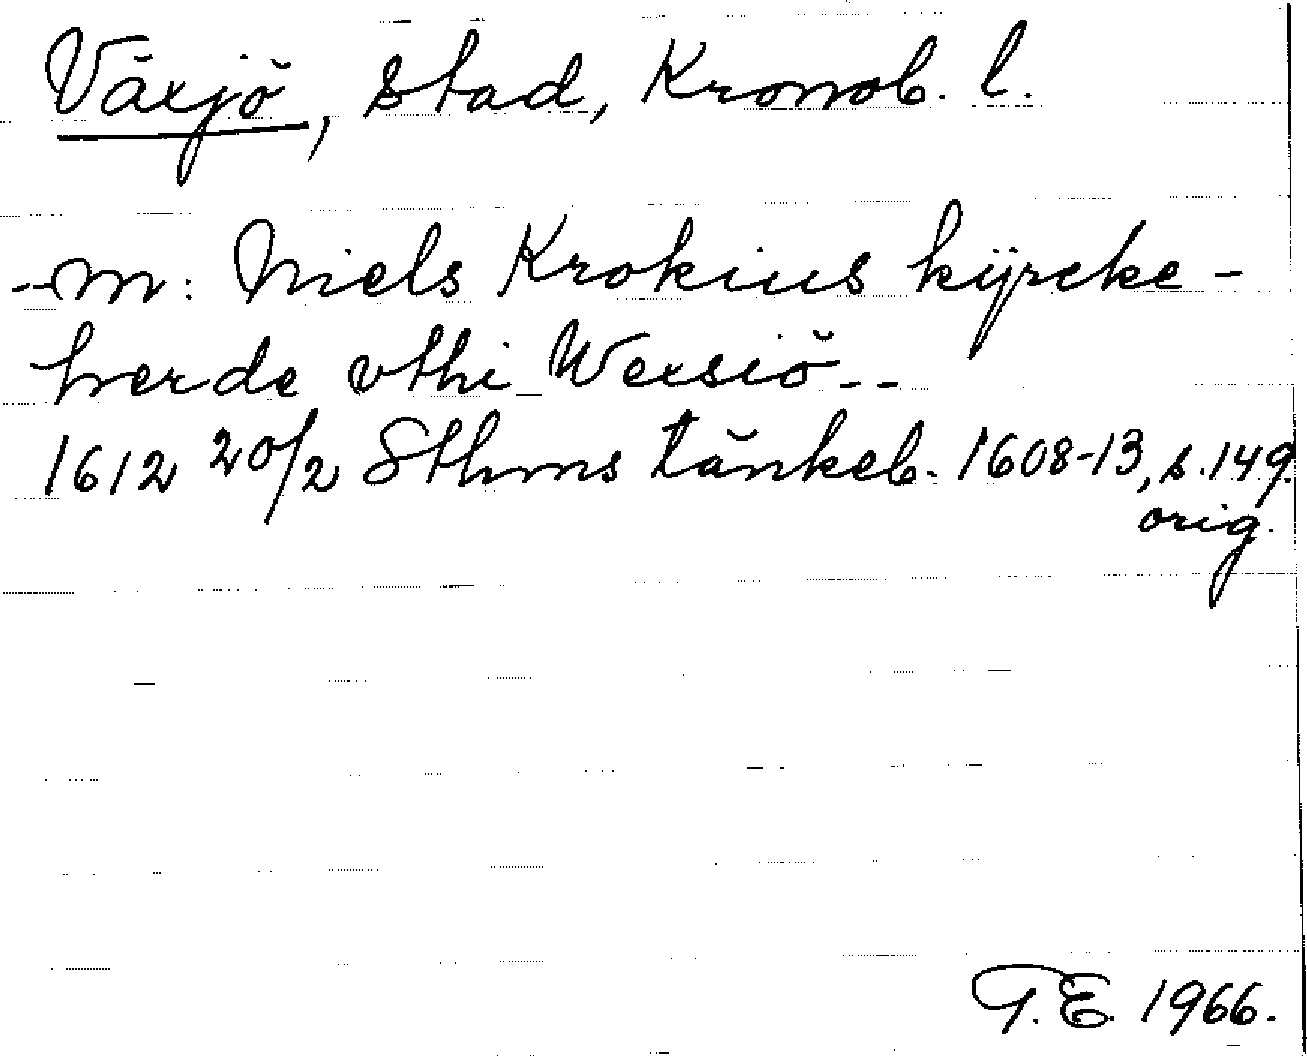 Växjö, stad, Kronob. l.
--m: Niels Krokius kÿrcke-
herde vthi Wexsiö--
1612 20/2 Sthms tänkeb. 1608-13, s. 149.
orig.
T.E. 1966.